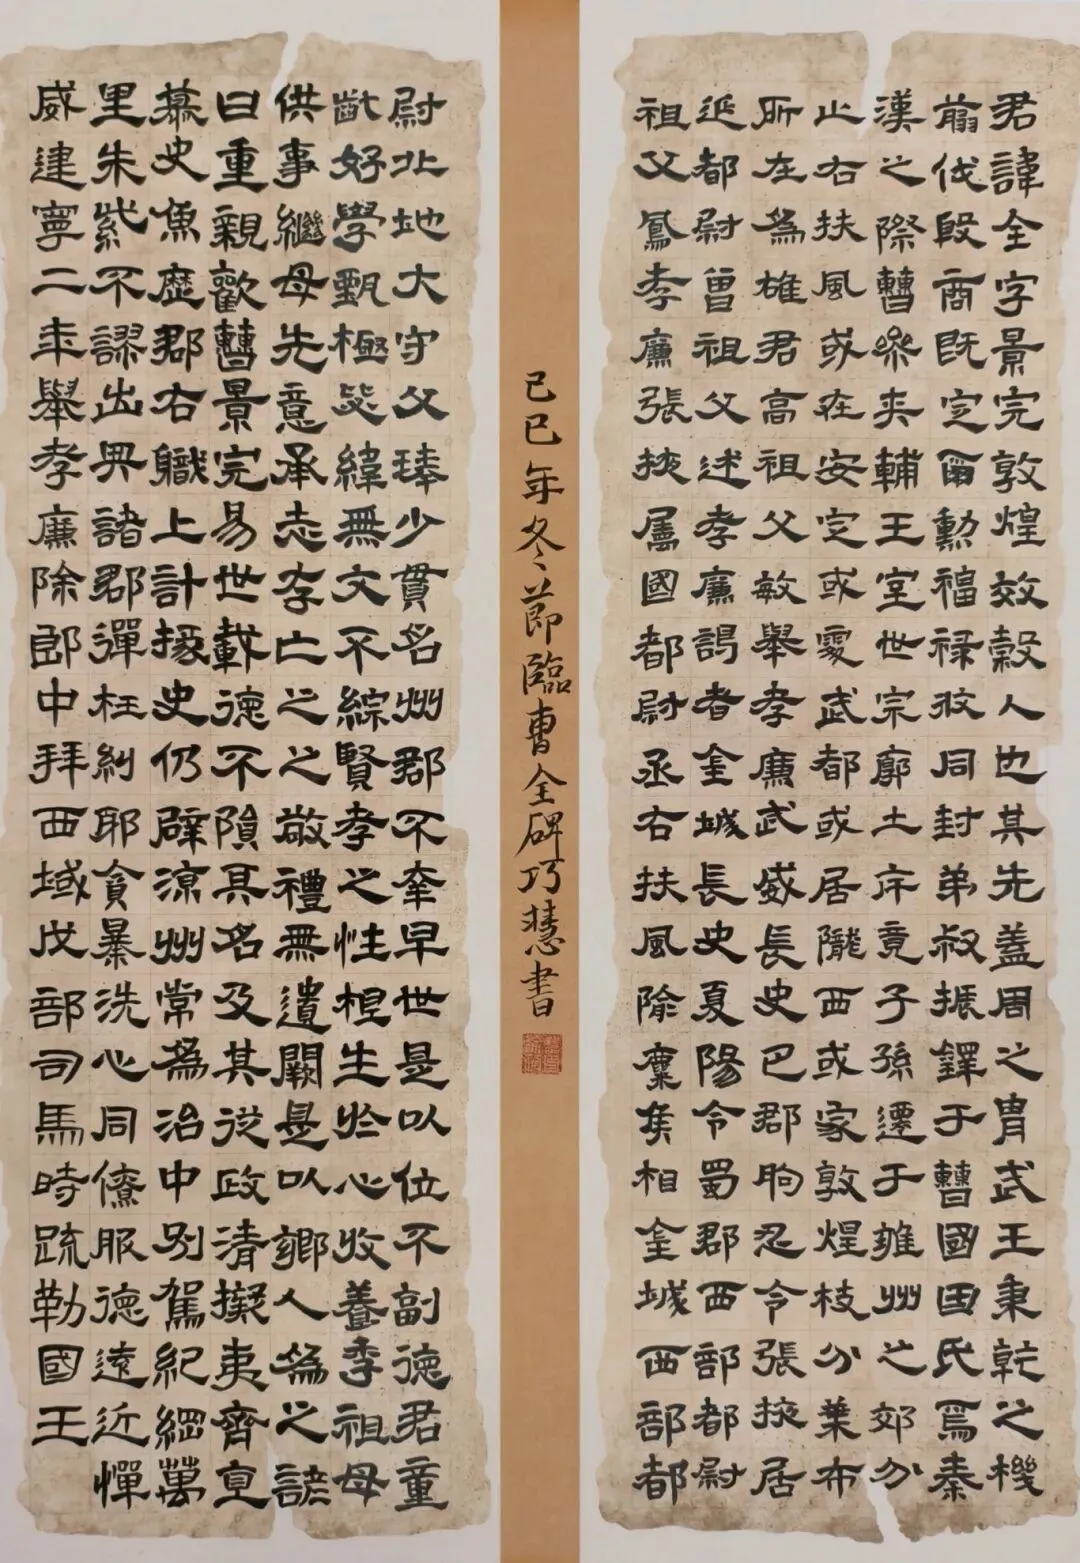 君諱全字景完敦煌效穀人也其先蓋周之胄武王秉乾之機
翦伐殷商既定爾勳福祿攸同封弟叔振鐸于曹國因氏焉秦
漢之際曹參夾輔王室世宗廓土斥竟子孫遷于雍州之郊分
止右扶風或在安定或處武都或居隴西或家敦煌枝分葉布
所在為雄君高祖父敏舉孝廉武威長史巴郡朐忍令張掖居
延都尉曾祖父述孝廉謁者金城長史夏陽令蜀郡西部都尉
祖父鳳孝廉張掖屬國都尉丞右扶風隃麋侯相金城西部都
尉北地大守父琫少貫名州郡不幸早世是以位不副德君童
齔好學甄極毖緯無文不綜賢孝之性根生於心收養季祖母
供事繼母先意承志存亡之之敬禮無遺闕是以鄉人為之諺
曰重親歡曹景完易世載德不隕其名及其從政清擬夷齊直
慕史魚歷郡右職上計掾史仍辟涼州常為治中別駕紀綱萬
里朱紫不謬出典諸郡彈枉糾邪貪暴洗心同僚服德遠近憚
威建寧二年舉孝廉除郎中拜西域戊部司馬時疏勒國王
己巳年冬節臨曹全碑巧慧書